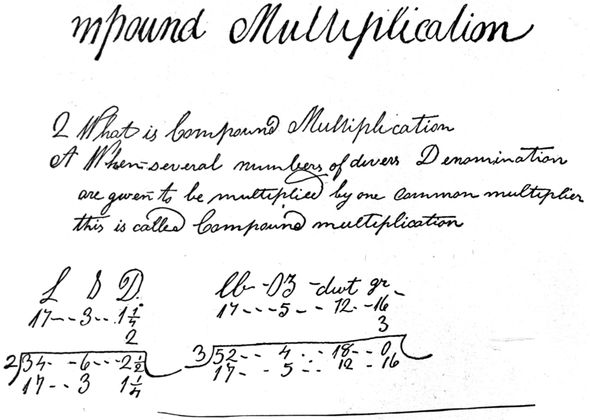 mpound Multiplication
Q What is Compound Multiplication
A When several numbers of divers Denomination
are given to be multiplied by one common multiplier
this is called Compound multiplication
L S D
17--3--1 1/4
2
2)34--6--2 1/2
17--3 1 1/4
lb-OZ-dwt gr
17--5--12--16
3
3)52--4--18--0
17--5--12-16